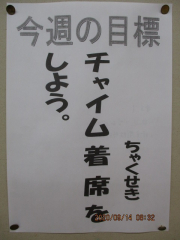 今週の目標
ちゃくせき
チャイム着席を
しよう。
2010/09/14 08:32